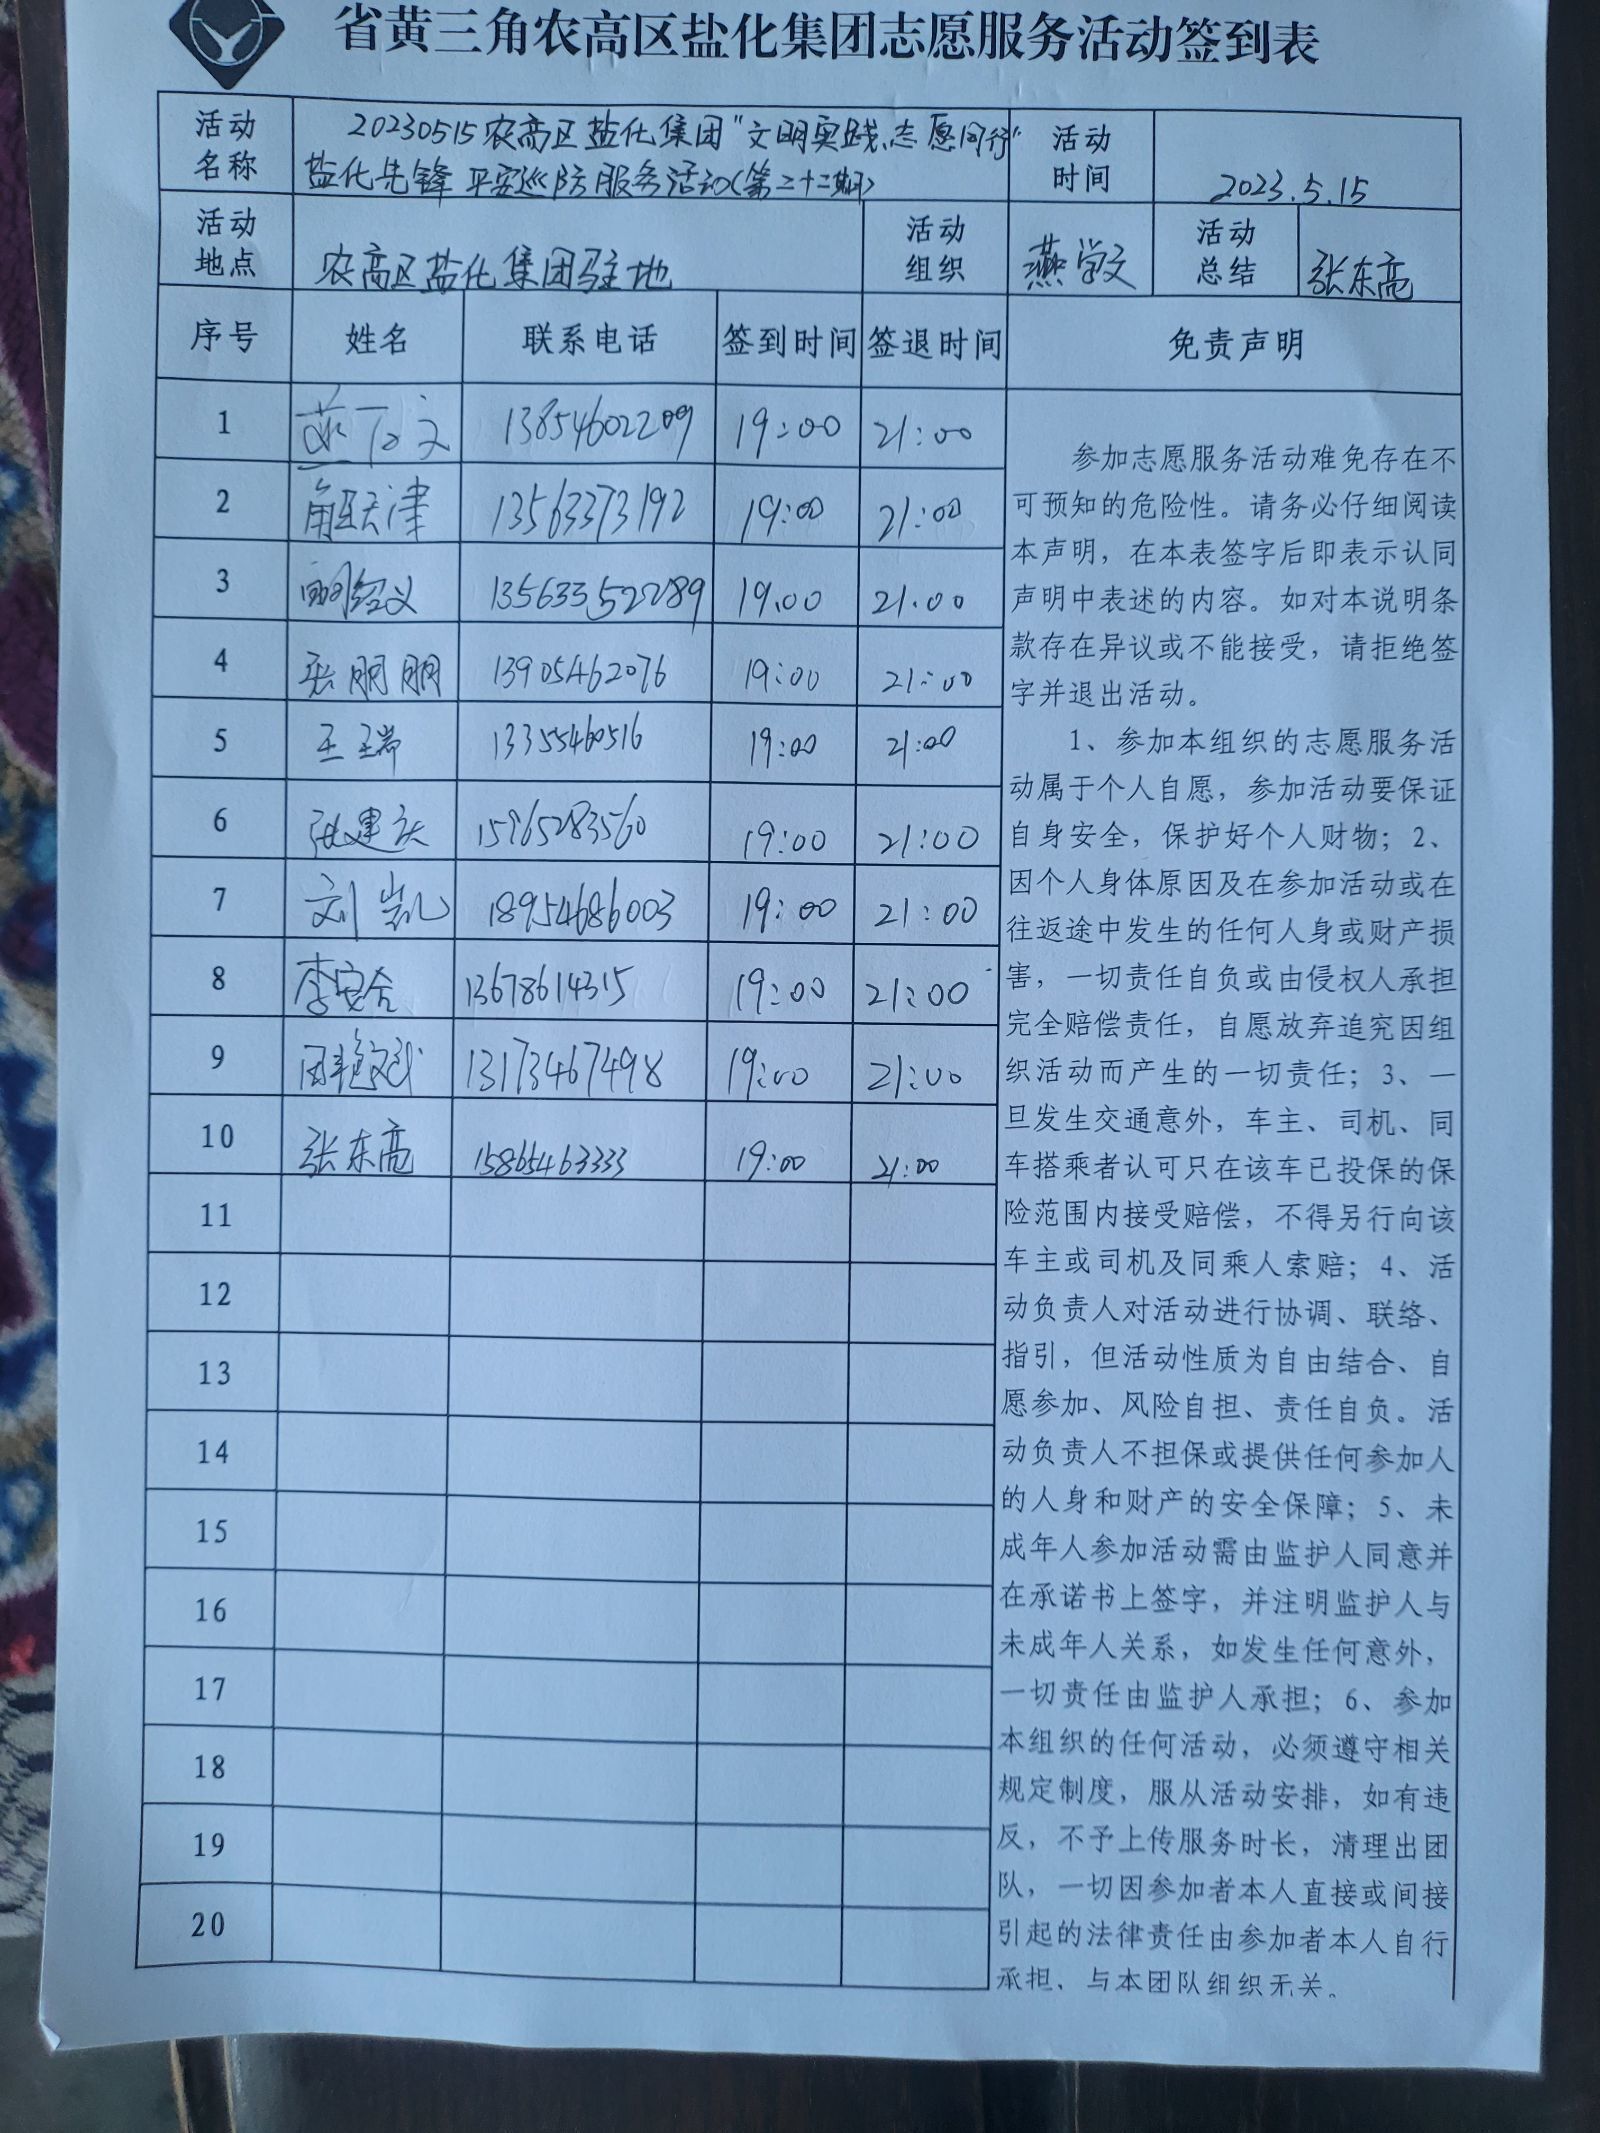 省黄三角农高区盐化集团志愿服务活动签到表
活动名称 20230515农高区盐化集团"文明实践、志愿同行" 活动时间 2023.5.15
盐化先锋平安巡防服务活动(第二十二期)
活动地点 农高区盐化集团驻地 活动组织 燕学文 活动总结 张东亮
序号 姓名 联系电话 签到时间 签退时间 免责声明
1 13854602209 19:00 21:00
2 13563373192 19:00 21:00
3 135633522289 19.00 21.00
4 张朋朋 13905462076 19:00 21:00
5 王瑞 13355460516 19:00 21:00
6 张建庆 15965283560 19:00 21:00
7 刘凯 18954686003 19:00 21:00
8 李安合 13678614315 19:00 21:00
9 13173467498 19:00 21:00
10 张东亮 15865463333 19:00 21:00
11
12
13
14
15
16
17
18
19
20
参加志愿服务活动难免存在不
可预知的危险性。请务必仔细阅读
本声明，在本表签字后即表示认同
声明中表述的内容。如对本说明条
款存在异议或不能接受，请拒绝签
字并退出活动。
1、参加本组织的志愿服务活
动属于个人自愿，参加活动要保证
自身安全，保护好个人财物；2、
因个人身体原因及在参加活动或在
往返途中发生的任何人身或财产损
害，一切责任自负或由侵权人承担
完全赔偿责任，自愿放弃追究因组
织活动而产生的一切责任；3、一
旦发生交通意外，车主、司机、同
车搭乘者认可只在该车已投保的保
险范围内接受赔偿，不得另行向该
车主或司机及同乘人索赔；4、活
动负责人对活动进行协调、联络、
指引，但活动性质为自由结合、自
愿参加、风险自担、责任自负。活
动负责人不担保或提供任何参加人
的人身和财产的安全保障；5、未
成年人参加活动需由监护人同意并
在承诺书上签字，并注明监护人与
未成年人关系，如发生任何意外，
一切责任由监护人承担；6、参加
本组织的任何活动，必须遵守相关
规定制度，服从活动安排，如有违
反，不予上传服务时长，清理出团
队，一切因参加者本人直接或间接
引起的法律责任由参加者本人自行
承担、与本团队组织无关。